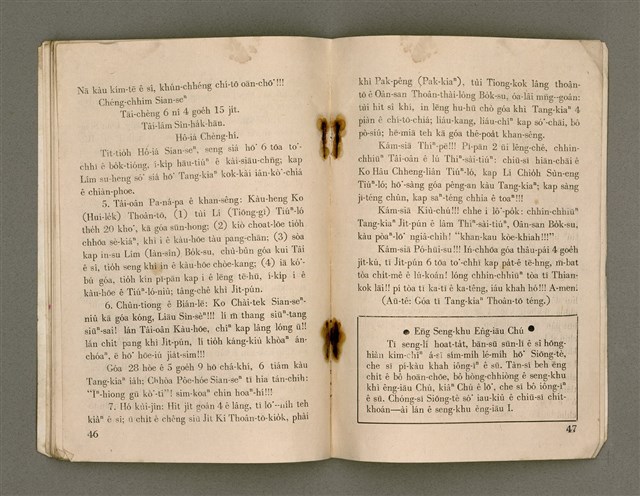 Nā kàu kim-tê ê sî, khún-chhéng chí-tō oān-chō͘!!!
Chéng-chhim Sian-seⁿ
Tāi-chèng 6 nî 4 goe̍h 15 ji̍t.
Tāi-lâm Sin-ha̍k-hāu.
Hô-iá Chèng-hí.
Tit-tio̍h Hô-iá Sian-seⁿ, seng siá hō͘ 6 tōa to͘-
chhī ê bo̍k-tióng, i-ki̍p hāu-tiúⁿ ê kài-siāu-chn̄g, kap
Lîm su-heng só͘ siá hō͘ Tang-kiaⁿ kok-kài ián-kò͘-chiá
ê chiàn-phoe.
5. Tâi-oân Pa-ná-pa ê khan-sêng: Kàu-heng Ko
(Hui-le̍k) Thoân-tō, (1) tùi Lí (Tiōng-gī) Tiúⁿ-ló
the̍h 20 kho͘, kā góa sùn-hong; (2) kiò choat-lōe tio̍h
chhōa sè-kiáⁿ, khì i ê káu-hōe tàu pang-chān; (3) sòa
kap in-su Lîm (Iàn-sîn) Bo̍k-su, chú-bûn góa kui Tâi
ê sì, tio̍h seng khì in ê káu-hōe chòe-kang; (4) iā kō͘-
bú góa, tio̍h kin pī-pān kap i ê lêng tē-hū, i-ki̍p i ê
káu-hōe ê Tiúⁿ-ló-niû; tâng-chê khì Ji̍t-pún.
6. Chûn-tiong ê Biān-lē: Ko Chài-tek Sian-seⁿ-
niû kā góa kóng, Liāu Sin-sèⁿ!!! lí m̄ thang siūⁿ-tang
siūⁿ-sai! lán Tâi-oân Káu-hōe, chīⁿ kap lâng lóng ū!!
lán chit pang khì Ji̍t-pún, lí tio̍h káng-kiù khòaⁿ án-
chóaⁿ, ē hō͘ hōe-iú jia̍t-sim!!!
Góa 28 hōe ê 5 goe̍h 9 hō chá-khí, 6 tiám kàu
Tang-kiaⁿ ia̍h; Chhòa Pôe-hóe Sian-seⁿ tī hia tán-chih:
“Iⁿ-hiong gū kò͘-ti”! sim-koaⁿ chin hoaⁿ-hí!!!
7. Hó kúi-jîn: Hit ji̍t goán 4 ê lâng, tī lō͘-nih teh
kiâⁿ ê sî; ū chi̍t ê chêng siū Ji̍t Ki Thoân-tō-kio̍k, phài
46
khì Pak-pêng (Pak-kiaⁿ), tùi Tiong-kok lâng thoân-
tō ê Oân-san Thoân-thài-lông Bo̍k-su, óa-lâi mn̄g-goán:
tùi hit sî khí, in lêng hu-hū chò góa khì Tang-kiaⁿ 4
piàn ê chí-tō-chiá; liáu-kang, liáu-chîⁿ kap só͘-chāi, bô
pò-siù; hē-miā teh kā góa thè-poa̍t khan-sêng.
Kám-siā Thiⁿ-pē!!! Pī-pān 2 úi lêng-chē, chhin-
chhiūⁿ Tâi-oân ê lú Thiⁿ-sài-tiúⁿ: chiū-sī hiān-chāi ê
Ko Hāu Chheng-liân Tiúⁿ-ló, kap Lí Chio̍h Sûn-eng
Tiúⁿ-ló; hō͘-sàng góa pêng-an kàu Tang-kiaⁿ; kap sàng
jī-tēng chún, kap saⁿ-tēng chhia ê toaⁿ!!!
Kám-siā Kiù-chú!!! chhe i lō͘-po̍k: chhin-chhiūⁿ
Tang-kiaⁿ Ji̍t-pún ê lâm Thiⁿ-sài-tiúⁿ, Oân-san Bo̍k-su,
kàu pòaⁿ-lō͘ ngiâ-chih! “khan-kau kòe-khiah!!!”
Kám-siā Pó-hūi-su!!! Ìn-chhōa góa thâu-pái 4 goe̍h
ji̍t-kú, tī Ji̍t-pún 6 tōa to͘-chhī kap pa̍t-ê tē-hng, m̄-bat
tòa chi̍t-mê ê lú-koán! lóng chhin-chhiūⁿ tòa tī Thian-
kok lāi!! pí tòa tī ka-tī ê ka-têng, iáu khah hó!!! A-men!
(Aū-tê: Góa tī Tang-kiaⁿ Thoân-tō téng.)
● Eñg Seng-khu Eñg-iāu Chú ●
Tī seng-lí hoat-ta̍t, bān-sū sūn-lī ê sî hông-
hiàn kim-chîⁿ á-sī sím-mi̍h lé-mi̍h hō͘ Siōng-tè,
che sī pí-kàu khah iông-īⁿ ê sū. Tán-sī beh ēng
chi̍t ê bô hoān-chōe, bô hông-chhiòng ê seng-khu
khì êng-iāu Chú, kiâⁿ Chú ê lō͘, che sī bô iông-īⁿ
ê sū. Chóng-sī Siōng-tè só͘ iau-kiû ê chiū-sī chit-
khoán—ài lán ê seng-khu êng-iāu I.
47